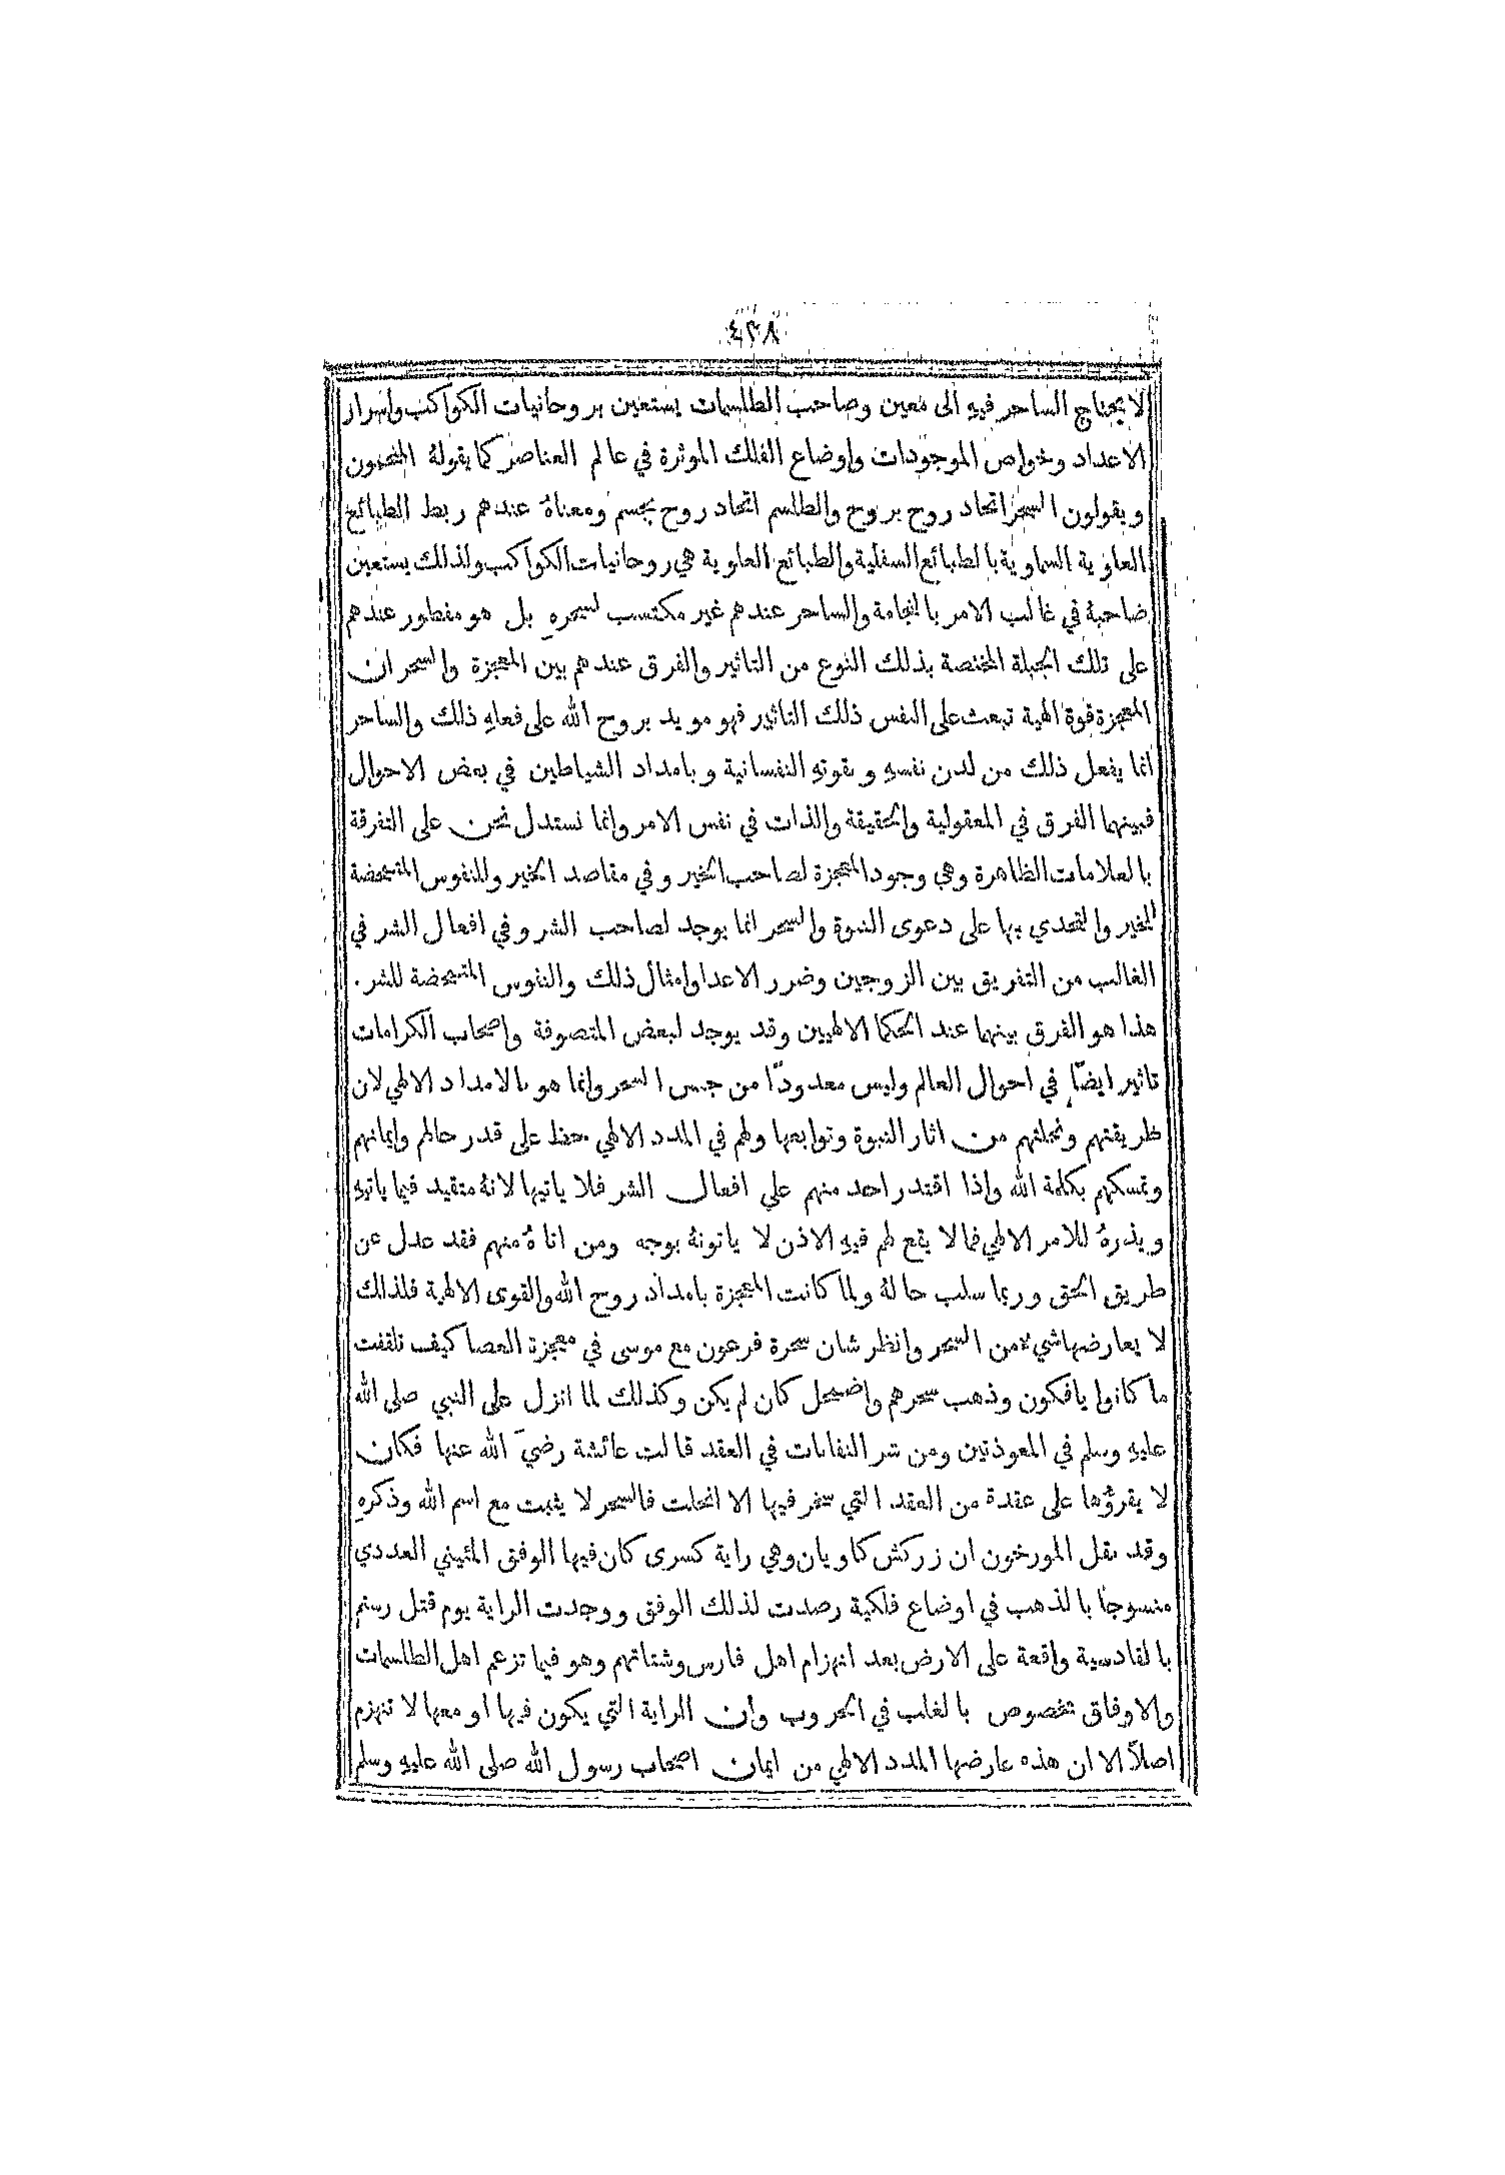 ٤٣٨
لا يحتاج الساحر فيهِ الى معين وصاحب الطلسمات يستعين بروحانيات الكواكب واسرار
الاعداد وخواص الموجودات واوضاع الفلك الموثرة في عالم العناصر كما يقولهُ المنجمون
ويقولون السحر اتحاد روح بروح والطلسم اتحاد روح بجسم ومعناهُ عندهم ربط الطبائع
العلوية السماوية بالطبائع السفلية والطبائع العلوية هي روحانيات الكواكب ولذلك يستعين
صاحبهُ في غالب الامر بالنجامة والساحر عندهم غير مكتسب لسحرهِ بل هو مفطور عندهم
على تلك الجبلة المختصة بذلك النوع من التاثير والفرق عندهم بين المعجزة والسحر ان
المعجزة قوة الهية تبعث على النفس ذلك التاثير فهو مويد بروح الله على فعلهِ ذلك والساحر
انما يفعل ذلك من لدن نفسهِ وبقوتهِ النفسانية وبامداد الشياطين في بعض الاحوال
فبينهما الفرق في المعقولية والحقيقة والذات في نفس الامر وانما نستدل نحن على التفرقة
بالعلامات الظاهرة وهي وجود المعجزة لصاحب الخير وفي مقاصد الخير وللنفوس المتمحضة
للخير والتحدي بها على دعوى النبوة والسحر انما يوجد لصاحب الشر وفي افعال الشر في
الغالب من التفريق بين الزوجين وضرر الاعدا وامثال ذلك وللنفوس المتمحضة للشر.
هذا هو الفرق بينهما عند الحكما الالهيين وقد يوجد لبعض المتصوفة واصحاب الكرامات
تاثير ايضًا في احوال العالم وليس معدودًا من جنس السحر وانما هو بالامداد الالهي لان
طريقتهم ونحلتهم من اثار النبوة وتوابعها ولهم في المدد الالهي حظ على قدر حالهم وايمانهم
وتمسكهم بكلمة الله واذا اقتدر احد منهم على افعال الشر فلا ياتيها لانهُ متقيد فيما ياتيهِ
ويذرهُ للامر الالهي فما لا يقع لهم فيهِ الاذن لا ياتونهُ بوجه ومن اتاهُ منهم فقد عدل عن
طريق الحق وربما سلب حالهُ ولما كانت المعجزة بامداد روح الله والقوى الالهية فلذلك
لا يعارضها شيء من السحر وانظر شان سحرة فرعون مع موسى في معجزة العصا كيف تلقفت
ما كانوا يافكون وذهب سحرهم واضمحل كان لم يكن وكذلك لما انزل على النبي صلى الله
عليهِ وسلم في المعوذتين ومن شر النفاثات في العقد قالت عائشة رضيَ الله عنها فكان
لا يقرؤُها على عقدة من العقد التي سحر فيها الا انحلت فالسحر لا يثبت مع اسم الله وذكرهِ
وقد نقل المورخون ان زركش كاويان وهي راية كسرى كان فيها الوفق المئيني العددي
منسوجًا بالذهب في اوضاع فلكية رصدت لذلك الوفق ووجدت الراية يوم قتل رستم
بالقادسية واقعة على الارض بعد انهزام اهل فارس وشتاتهم وهو فيما تزعم اهل الطلسمات
والاوفاق مخصوص بالغلب في الحروب وان الراية التي يكون فيها او معها لا تنهزم
اصلًا الا ان هذه عارضها المدد الالهي من ايمان اصحاب رسول الله صلى الله عليهِ وسلم